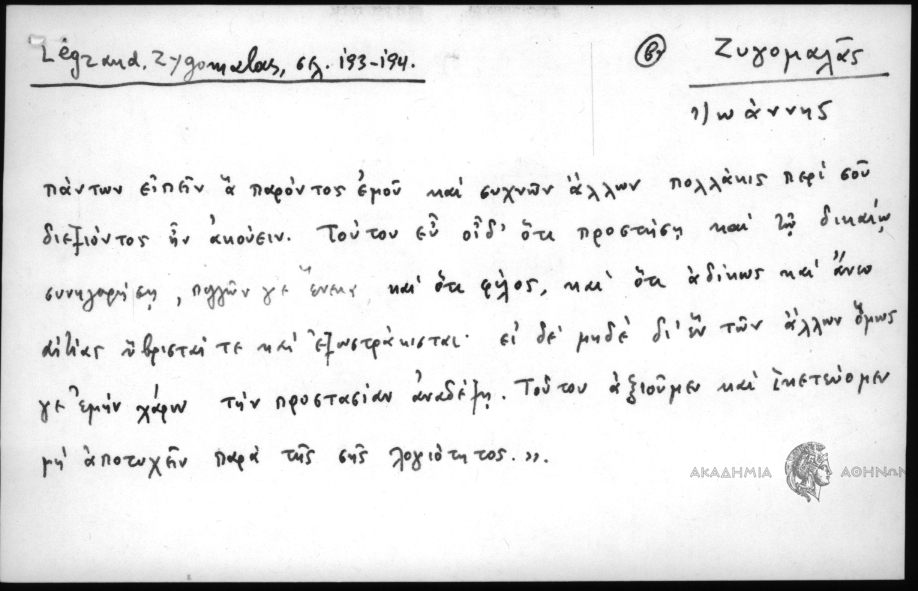 Légrand, Zygomalas, σελ. 193-194.
β) Ζυγομαλᾶς
Ἰωάννης
πάντων εἰπεῖν ἃ παρόντος ἐμοῦ καὶ συχνῶν ἄλλων πολλάκις περὶ σοῦ
διεξιόντος ἦν ἀκούειν. Τούτου εὖ οἶδ' ὅτι προστήσῃ καὶ τῷ δικαίῳ
συνηγορήσῃ, πολλῶν γε ἕνεκα, καὶ ὅτι φίλος, καὶ ὅτι ἀδίκως καὶ ἄνευ
αἰτίας ὕβρισταί τε καὶ ἐξωστράκισται· εἰ δὲ μηδὲ δι' ἓν τῶν ἄλλων ὅμως
γε ἐμὴν χάριν τὴν προστασίαν ἀναδέξῃ. Τούτου ἀξιοῦμεν καὶ ἱκετεύομεν
μὴ ἀποτυχεῖν παρὰ τῆς σῆς λογιότητος.».
ΑΚΑΔΗΜΙΑ ΑΘΗΝΩΝ